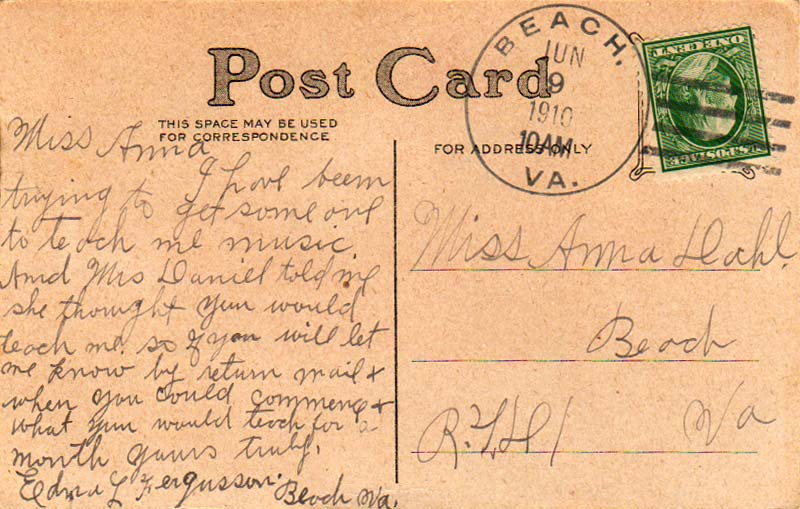 Post Card
THIS SPACE MAY BE USED
FOR CORRESPONDENCE
FOR ADDRESS ONLY
BEACH,
JUN
9
1910
10AM
VA.
ONE CENT
U.S. POSTAGE
Miss Anna
I have been
trying to get some one
to teach me music
And Mrs Daniel told me
she thought you would
teach me. so if you will let
me know by return mail +
when you could commence +
what you would teach for a
month yours truly,
Edna L Fergusson.
Beach Va.
Miss Anna Dahl.
Beach
R.F.D. 1 Va